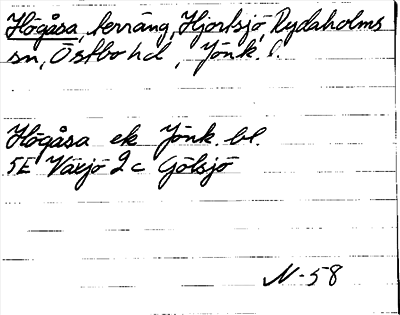 Högåsa, terräng, Hjortsjö, Rydaholms
sn, Östbo hd, Jönk. l.
Högåsa ek Jönk. bl.
5E Växjö 2c Gölsjö
N-58